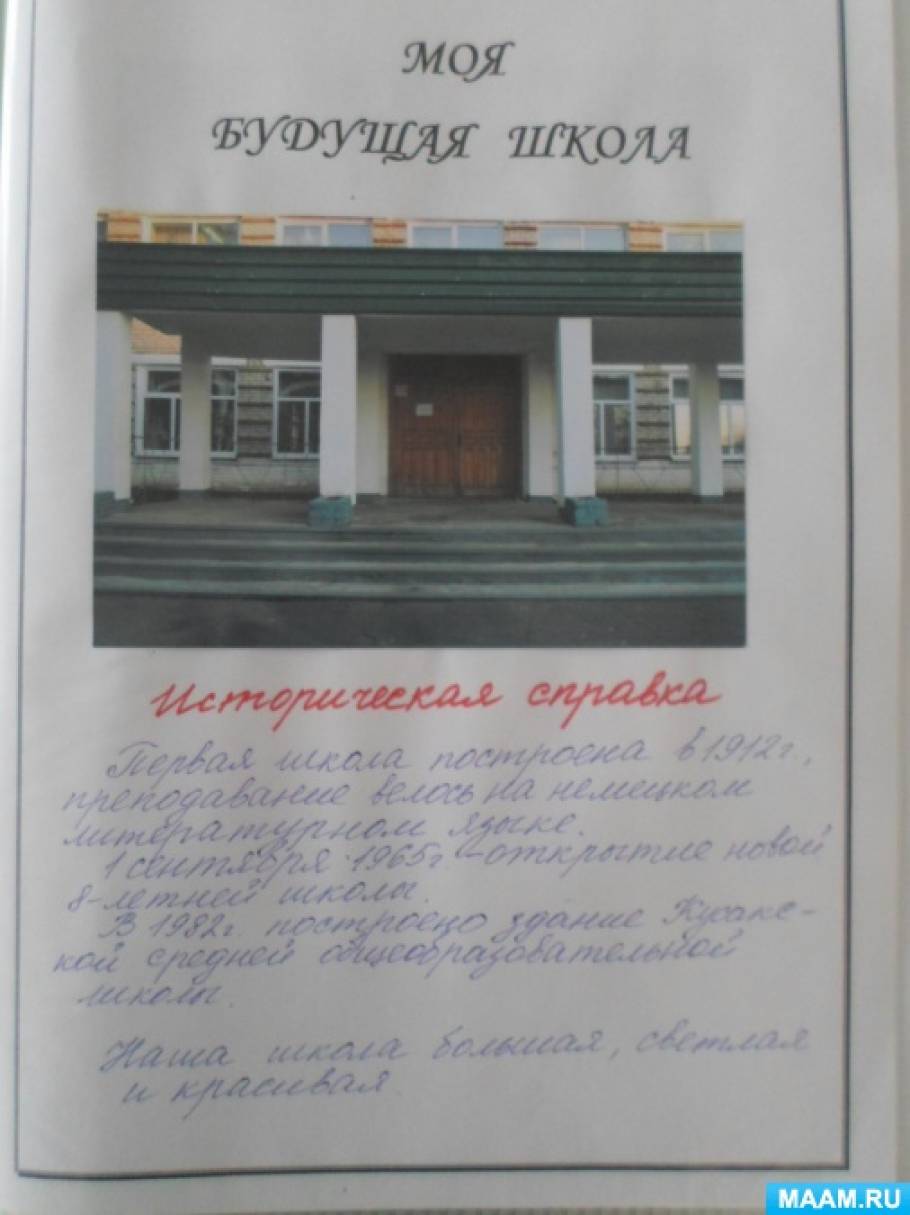 МОЯ
БУДУЩАЯ ШКОЛА
Историческая справка
Первая школа построена в 1912г.,
преподавание велось на немецком
литературном языке.
1 сентября 1965г. - открытие новой
8-летней школы.
В 1982г. построено здание Кусакс-
кой средней общеобразовательной
школы.
Наша школа большая, светлая
и красивая.
MAAM.RU